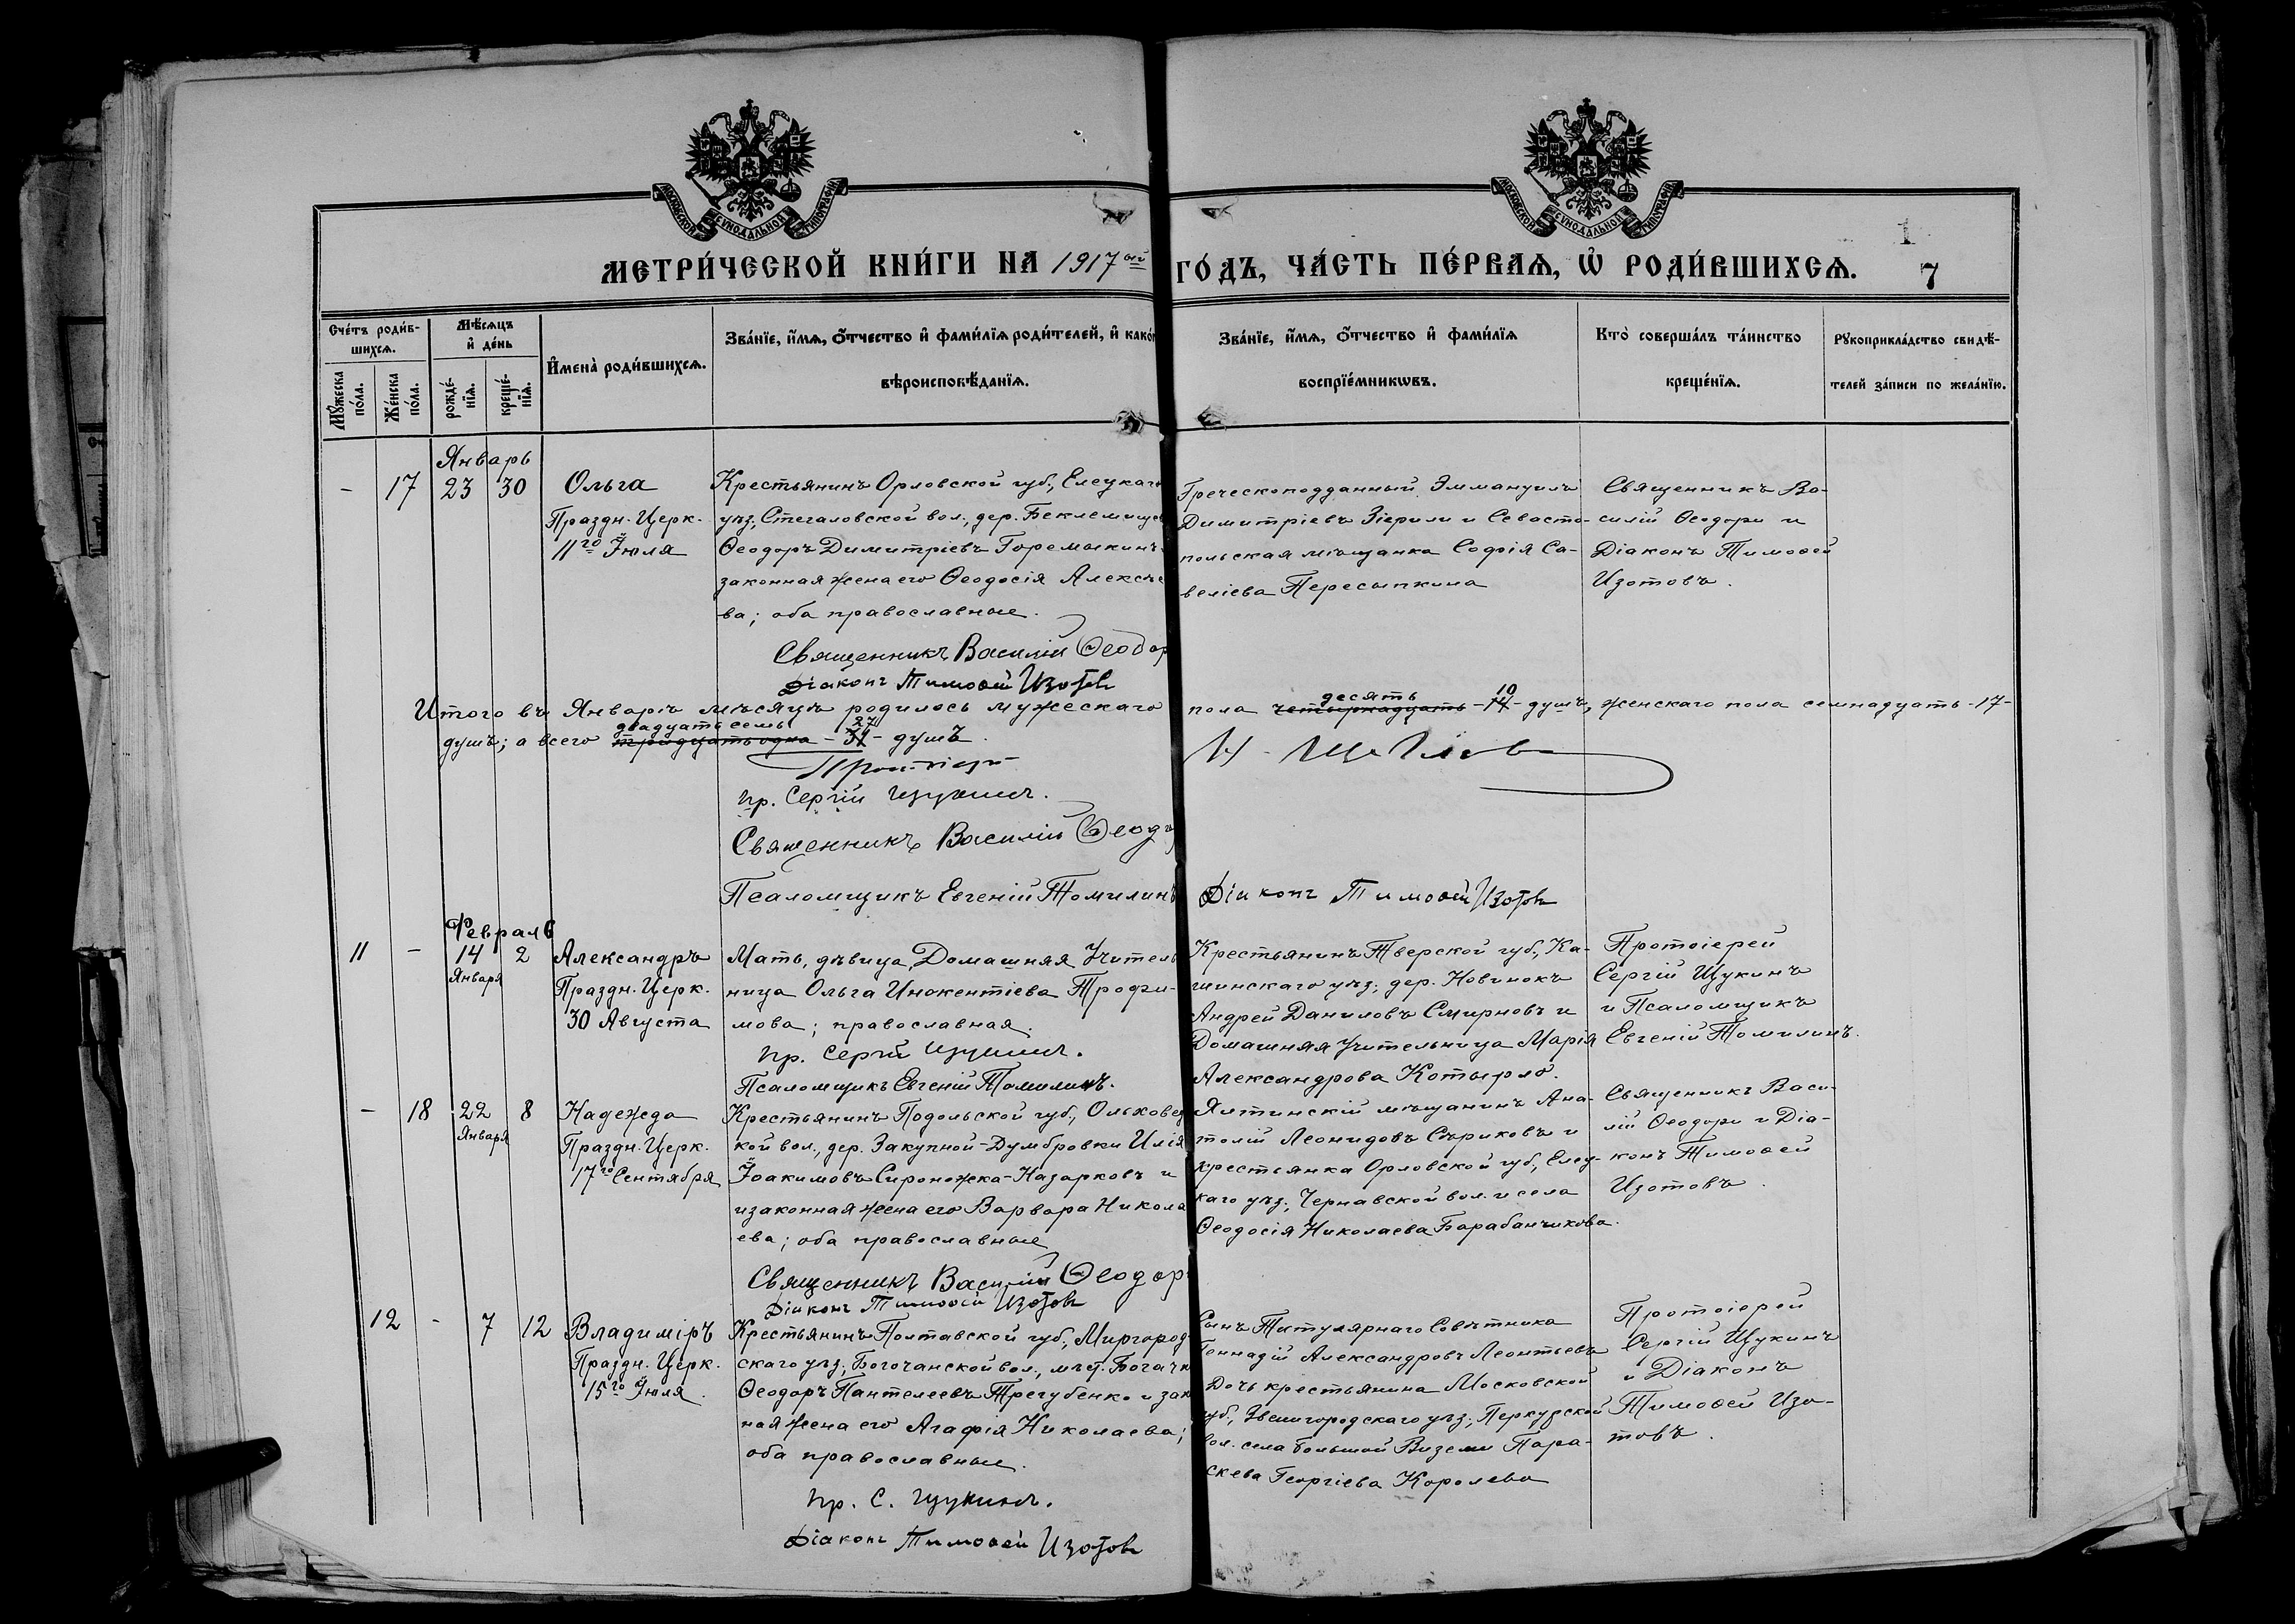 МОСКОВСКОЙ СѴНОДАЛЬНОЙ ТИПОГРАФІИ
МОСКОВСКОЙ СѴНОДАЛЬНОЙ ТИПОГРАФІИ
1
МЕТРИ́ЧЕСКОЙ КНИ́ГИ НА 1917ый ГО́ДЪ, ЧА́СТЬ ПЕ́РВАѦ, Ѡ҆ РОДИ́ВШИХСѦ.
7
Сче́тъ роди́в-
шихсѧ.
Мꙋ́жеска
по́ла.
Же́нска
по́ла.
Мѣ́сѧцъ
и҆ де́нь
рожде́-
нїѧ.
креще́-
нїѧ.
И҆мена̀ роди́вшихсѧ.
Зва́нїе, и҆́мѧ, ѻ҆́тчество и҆ фами́лїѧ роди́телей, и҆ како́г
вѣроисповѣ́данїѧ.
Зва́нїе, и҆́мѧ, ѻ҆́тчество и҆ фами́лїѧ
воспрїе́мникѡвъ.
Кто̀ соверша́лъ та́инство
креще́нїѧ.
Рꙋкоприкла́дство свидѣ́-
телей за́писи по жела́нїю.
Январь
- 17 23 30
Ольга
Праздн. Церк.
11го Іюля
Крестьянинъ Орловской губ., Елецкаго
уѣз., Стегаловской вол., дер. Беклемищев
Ѳеодоръ Димитріевъ Горемыкинъ
законная жена его Ѳеодосія Алексѣе
ва; оба православные.
Священникъ Василій Ѳеодор
Діаконъ Тимоѳей Изотовъ
Греческоподданный Эммануилъ
Димитріевъ Зіерили и Севасто-
польская мѣщанка Софія Са-
веліева Пересыпкина
Священникъ Ва-
силій Ѳеодори и
Діаконъ Тимоѳей
Изотовъ.
десять 10
Итого въ Январѣ мѣсяцѣ родилось мужескаго пола четырнадцать -14- душъ, женскаго пола семнадцать -17-
двадцать семь 27
душъ; а всего тридцать одна - 31 - душъ.
Протоіер
Н. Щеглов
пр. Сергій Щукинъ.
Священникъ Василій Ѳеодо
Псаломщикъ Евгеній Томилинъ
Діаконъ Тимоѳей Изотовъ
Февраль
11 - 14 2
Января
Александръ
Праздн. Церк.
30 Августа
Мать, дѣвица, Домашняя Учитель
ница Ольга Инокентіева Трофи-
мова; православная.
пр. Сергій Щукинъ.
Псаломщикъ Евгеній Томилинъ.
Крестьянинъ Тверской губ., Ка-
шинскаго уѣз., дер. Новинокъ
Андрей Даниловъ Смирновъ и
Домашняя Учительница Марія
Александрова Котырло.
Протоіерей
Сергій Щукинъ
и Псаломщикъ
Евгеній Томилинъ.
- 18 22 8
Января
Надежда
Праздн. Церк.
17го Сентября
Крестьянинъ Подольской губ., Ольховец
кой вол., дер. Закупной-Думбровки Илія
Іоакимовъ Сироножка-Назарковъ и
изаконная жена его Варвара Никола
ева; оба православные
Священникъ Василій Ѳеодор
Діаконъ Тимоѳей Изотовъ
Ялтинскій мѣщанинъ Ана-
толій Леонидовъ Сѣриковъ и
крестьянка Орловской губ., Елец-
каго уѣз., Чернавской вол. и села
Ѳеодосія Николаева Барабанчикова.
Священникъ Васи-
лій Ѳеодори и Діа-
конъ Тимоѳей
Изотовъ.
12 - 7 12
Владиміръ
Праздн. Церк.
15го Іюля.
Крестьянинъ Полтавской губ., Миргород
скаго уѣз., Богочанской вол., мѣст. Богачк
Ѳеодоръ Пантелеевъ Трегубенко и зак
ная жена его Агафія Николаева;
оба православные.
пр. С. Щукинъ.
Діаконъ Тимоѳей Изотовъ
Сынъ Титулярнаго Совѣтника
Геннадій Александровъ Леонтьевъ
Дочь крестьянина Московской
губ., Звенигородскаго уѣз., Перкурской
вол. села Большой Виземи Пара-
скева Георгіева Королева
Протоіерей
Сергій Щукинъ
и Діаконъ
Тимоѳей Изо-
товъ.